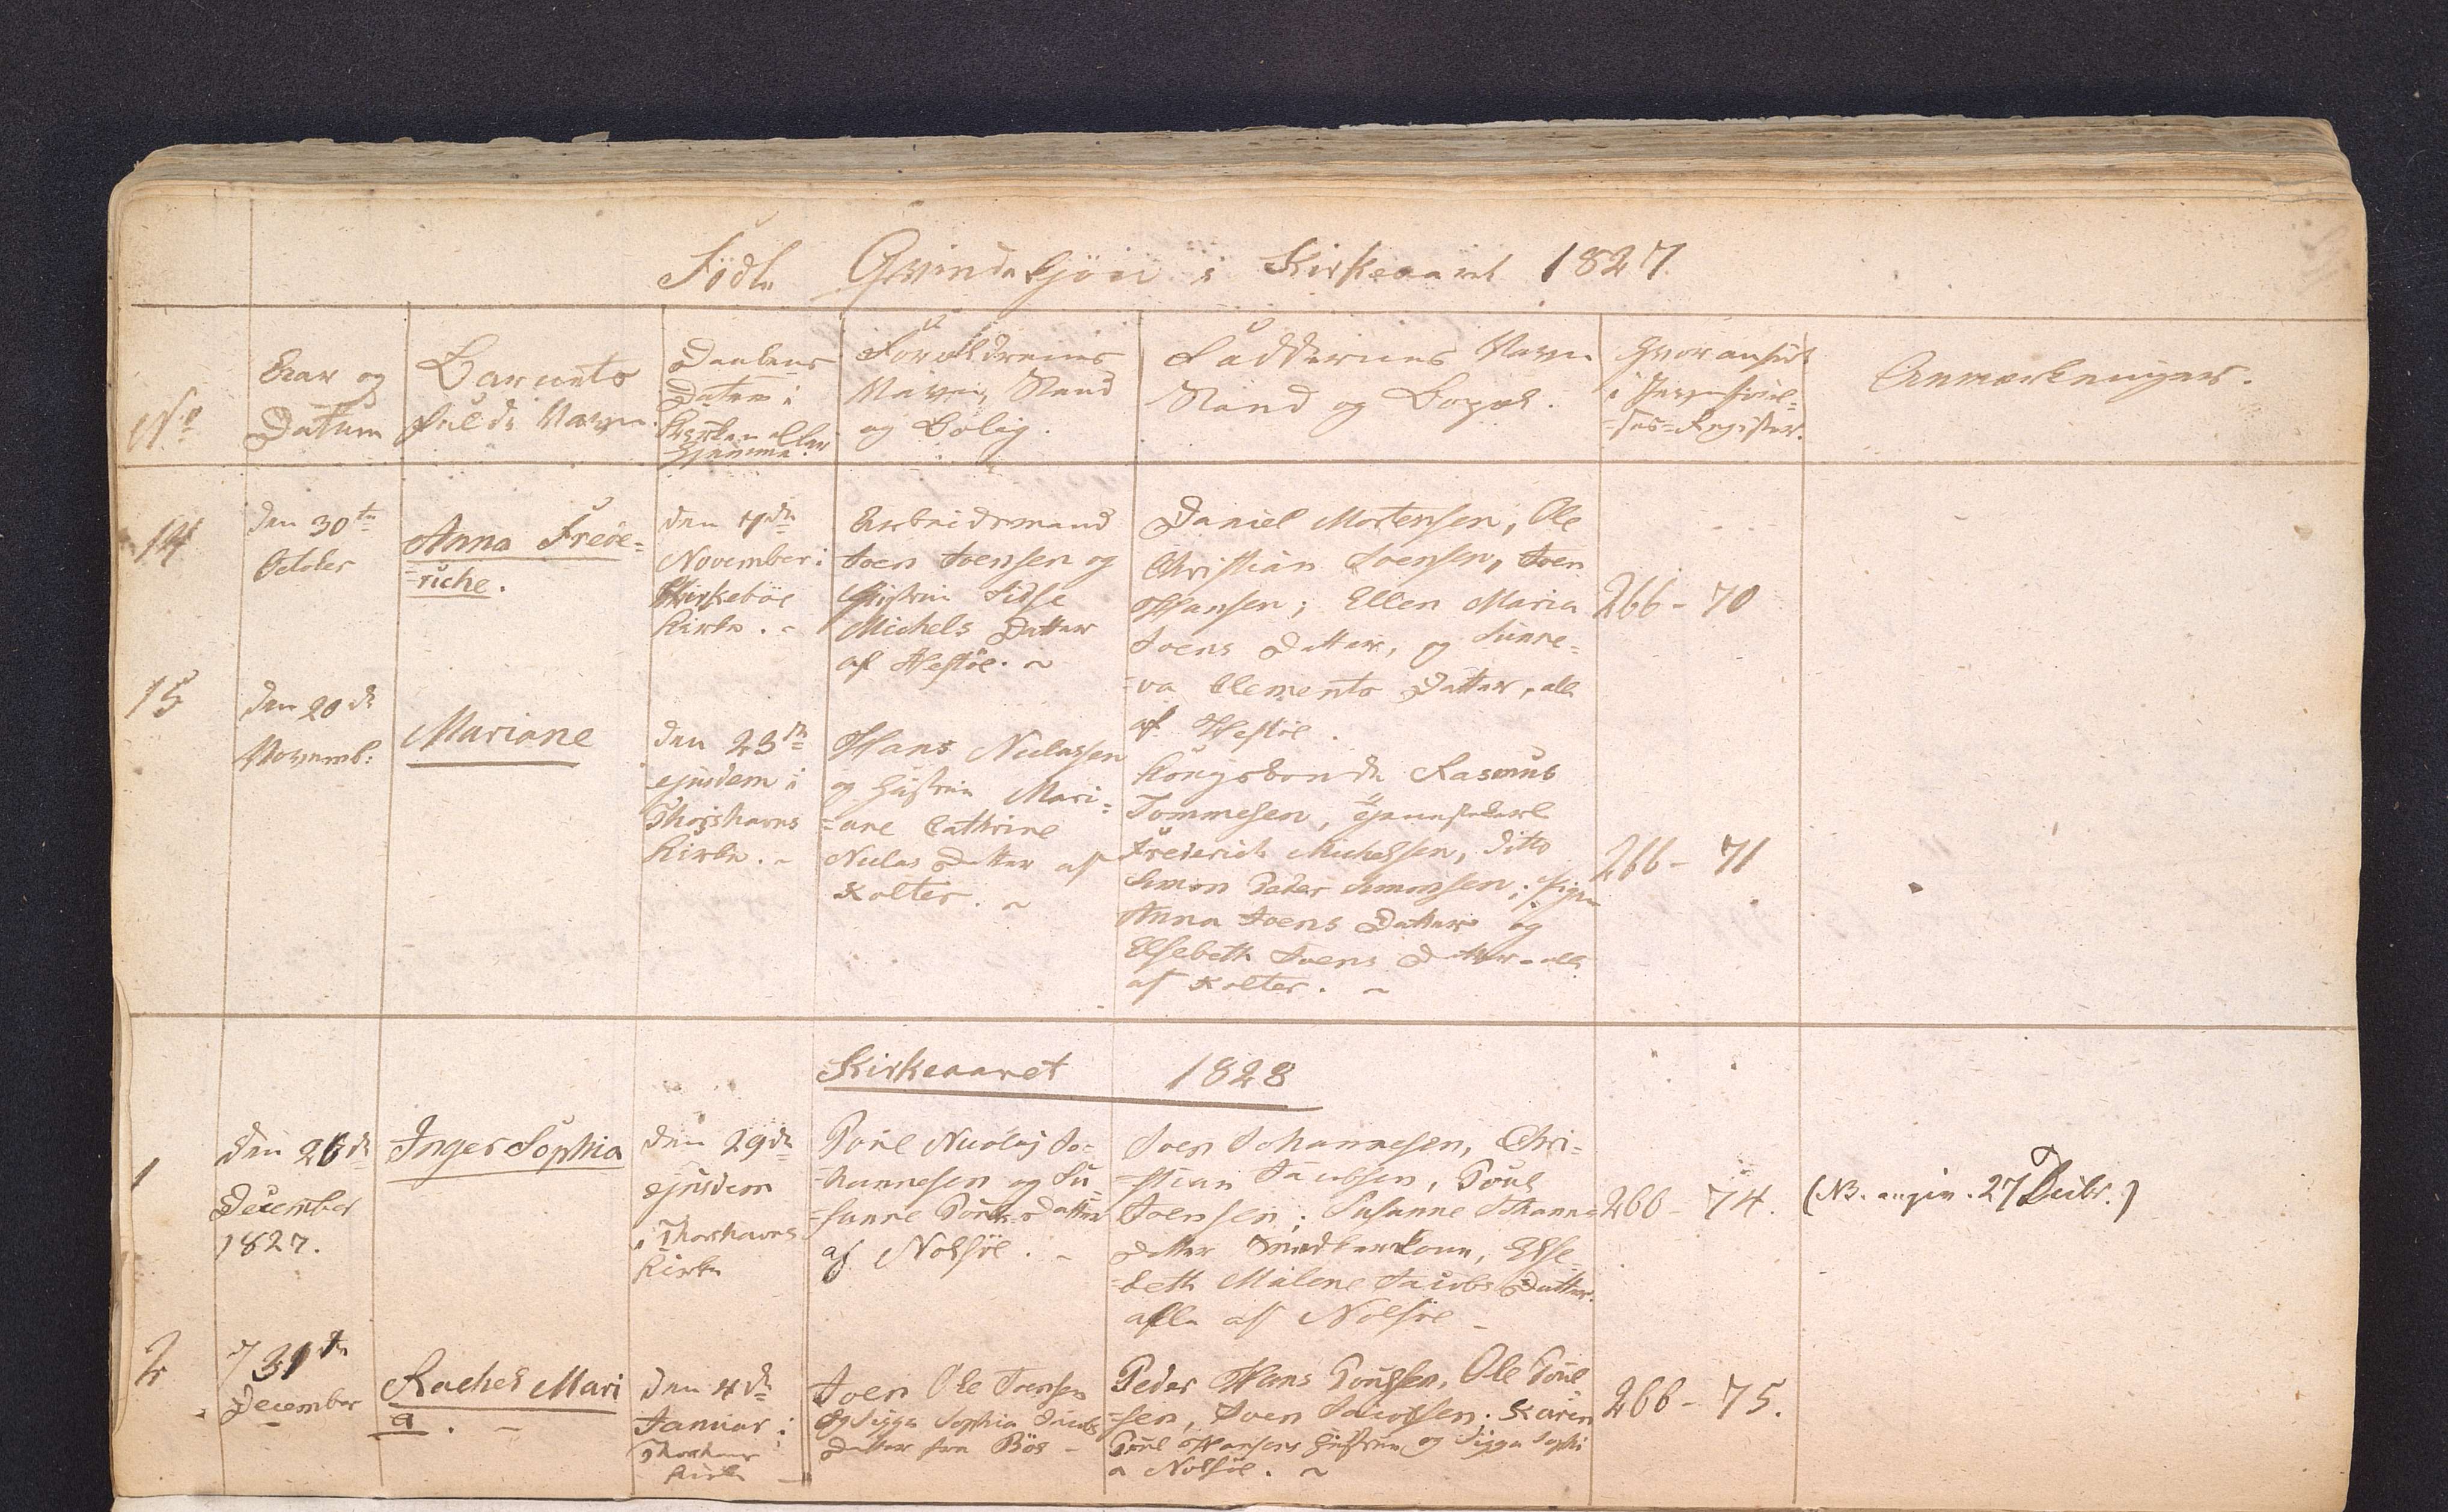 Födte Qvindekjön i Kirkeaaret 1827.
No
Aar og
Datum
Barnets
fulde Navn.
Daabens
Datum i
Kirken eller
Hjemme.
Forældrenes
Navn, Stand
og Bolig.
Faddernes Navn
Stand og Bopæl.
Hvor anført
i Jevnförel=
=ses=Register.
Anmærkninger.
14
den 30te
October
Anna Frede=
=riche.
den
November i
Kirkeböe
Kirke. -
Arbeidsmand
Joen Joensen og
Hustrue Sidse
Michels Datter
af Hestöe. ~
Daniel Mortensen, Ole
Christian Joensen, Joen
Hansen; Ellen Maria
Joens Datter, og Sunne=
=va Clements Datter, alle
af Hestöe.
266 - 70
15
den 20de
Novemb:
Mariane
den 23de
ejusdem i
Thorshavns
Kirke. -
Hans Niclassen
og Hustrue Mari=
=ane Cathrine
Niclas Datter af
Kolter. ~
Kongsbonde Rasmus
Tommesen, Tjenestekarl
Frederich Michelsen, ditto
Simon Peder Simonsen; Pigen
Anna Joens Datter og
Elsebeth Joens Datter - alle
af Kolter. ~
266 - 71
Kirkeaaret 1828
1
den 26de
December
1827.
Inger Sophia
den 29de
ejusdem
i Thorshavns
Kirke
Poul Nicolaj Jo=
=hannesen og Su
=sanne Pouls Datter
af Nolsöe. -
Joen Johannesen, Chri=
=stian Jacobsen, Poul
Joensen; Susanne Johann=
Datter Snedkerkone, Else=
=beth Malene Jacobs Datter.
alle af Nolsöe -
266 - 74.
(NB. angiv. 27 Decbr.)
2
31te
December
Rachel Mari
a. -
den 4de
Januar i
Thorshavns
Kirke
Joen Ole Joensen
og Sigga Sophia Jacobs
Datter fra Böe -
Peder Hans Poulsen, Ole Poul
=sen, Joen Jacobsen; Karen
Poul Hansens Hustrue og Sigga Sophi
a Nolsöe. ~
266 - 75.